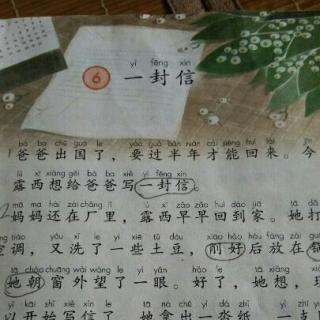 yì fēng xìn
6 一封信
bà ba chū guó le yào guò bàn nián cái néng huí lái jīn
爸爸出国了，要过半年才能回来。今
lù xī xiǎng gěi bà ba xiě yì fēng xìn
露西想给爸爸写一封信。
mā ma hái zài chǎng lǐ lù xī zǎo zǎo huí dào jiā tā
2 妈妈还在厂里，露西早早回到家。她打
tiáo yòu xǐ le yì xiē tǔ dòu xiāo hǎo hòu fàng zài
空调，又洗了一些土豆，削好后放在锅
tā cháo chuāng wài wàng le yì yǎn hǎo le tā xiǎng
她朝窗外望了一眼。好了，她想，现
yǐ kāi shǐ xiě xìn le tā ná chū yì
以开始写信了。她拿出一沓纸，一支